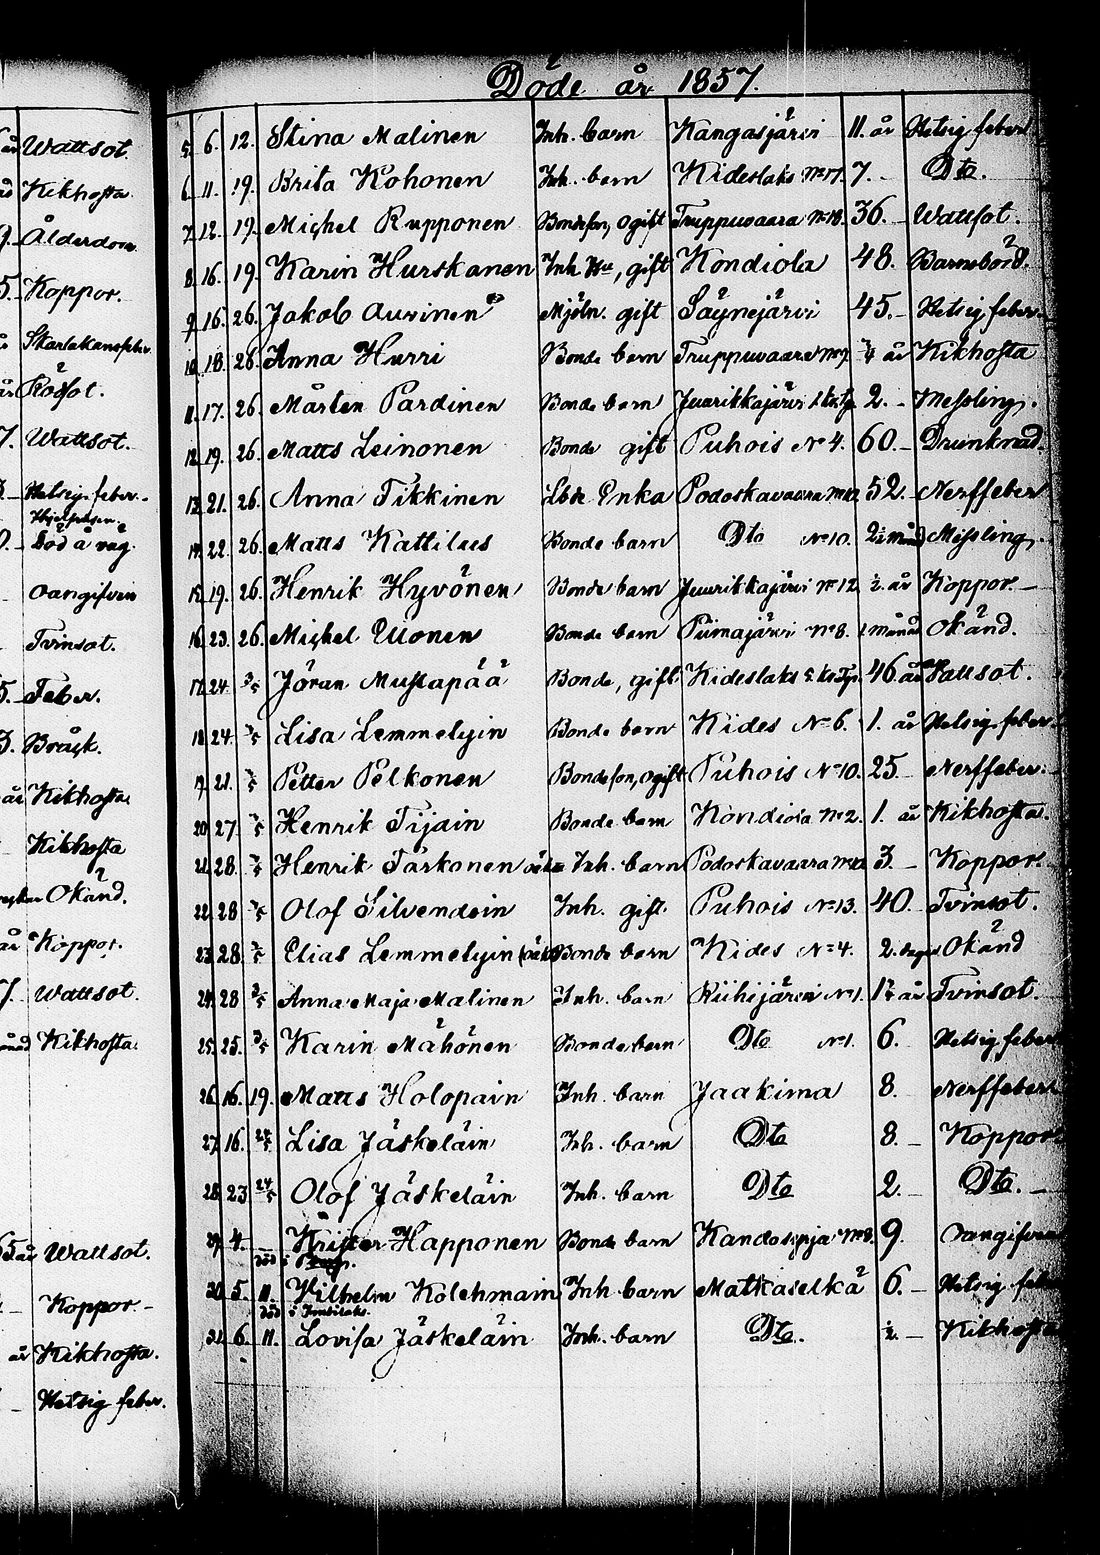 Döde år 1857.
Wattsot.
Kikhosta
Ålderdom.
Koppor.
Skarlakansfeber
Rödsot.
Wattsot.
Hetsig feber.
Död å väg.
Oangifven
Tvinsot.
Feber.
Bråck.
år Kikhosta
Kikhosta
Okänd.
år Koppor.
Wattsot.
Kikhosta.
65 år Wattsot.
Koppor -
år Kikhosta.
Hetsig feber.
5. 6. 12. Stina Malinen Inh. barn Kangasjärvi 11. år Hetsig feber
6. 11. 19. Brita Kohonen Inh. barn Kideslaks No 17. 7. - Dto.
7. 12. 19. Michel Rupponen Bondeson, ogift Truppuvaara No 18. 36. - Wattsot.
8. 16. 19. Karin Hurskanen Inh. Hu, gift Kondiola 48. Barnsbörd.
9. 16. 26. Jakob Auvinen Mjöln. gift Säynejärvi 45. - Hetsig feber.
10. 18. 26. Anna Hurri Bonde barn Truppuvaara No 7. år Kikhosta
11. 17. 26. Mårten Pardinen Bonde barn Juurikkajärvi 2. - Messling.
12. 19. 26. Matts Leinonen Bonde gift Puhois No 4. 60. - Drunknad.
13. 21. 26. Anna Tikkinen Lbde Enka Podoskavaara 52. - Nerffeber
14. 22. 26. Matts Kattilus Bonde barn Dto No 10. Missling.
15. 19. 26. Henrik Hyvönen Bonde barn Juurikkajärvi No 12 ½. år Koppor. -
16. 23. 26. Michel Ullonen Bonde barn Piimajärvi No 8. 1 månad Okänd.
17. 24. 3/5 Jöran Mustapää Bonde, gift Kideslaks 46 år Vattsot.
18. 24. 3/5 Lisa Lemmelyin Bonde barn Kides No 6. 1. år Hetsig feber
19. 21. 3/5 Petter Pelkonen Bondeson, ogift Puhois No 10. 25. - Nerffeber.
20. 27. 3/5 Henrik Tijain Bonde barn Kondiola No 2. 1. år Kikhosta.
21. 28. 3/5 Henrik Tarkonen Inh. barn Podoskavaara 3. - Koppor.
22. 28 3/5 Olof Silvendoin Inh. gift. Puhois No 13. 40. - Tvinsot.
23. 28. 3/5 Elias Lemmelyin Bonde barn Kides No 4. 2. dagar Okänd
24. 28 3/5 Anna Maja Malinen Inh. barn Riihijärvi No 1. år Tvinsot.
25. 25. 3/5 Karin Mähönen Bonde barn Dto No 1. 6. Hetsig feber
26. 16. 19. Matts Holopain Inh. barn Jaakima 8. Nerffeber
27. 16. 24/5 Lisa Jäskeläin Inh. barn Dto 8. - Koppor
28. 23. 24/5 Olof Jäskeläin Inh. barn Dto 2. - Dto. -
29. 4. Krister Happonen Bonde barn No 8. 9. Oangifven
död i
30. 5. 11. Vilhelm Kolehmain Inh barn Matkaselkä 6. - Hetsig feber
död i Imbilaks.
31. 6. 11. Lovisa Jäskeläin Inh. barn Dto. ½. - Kikhosta